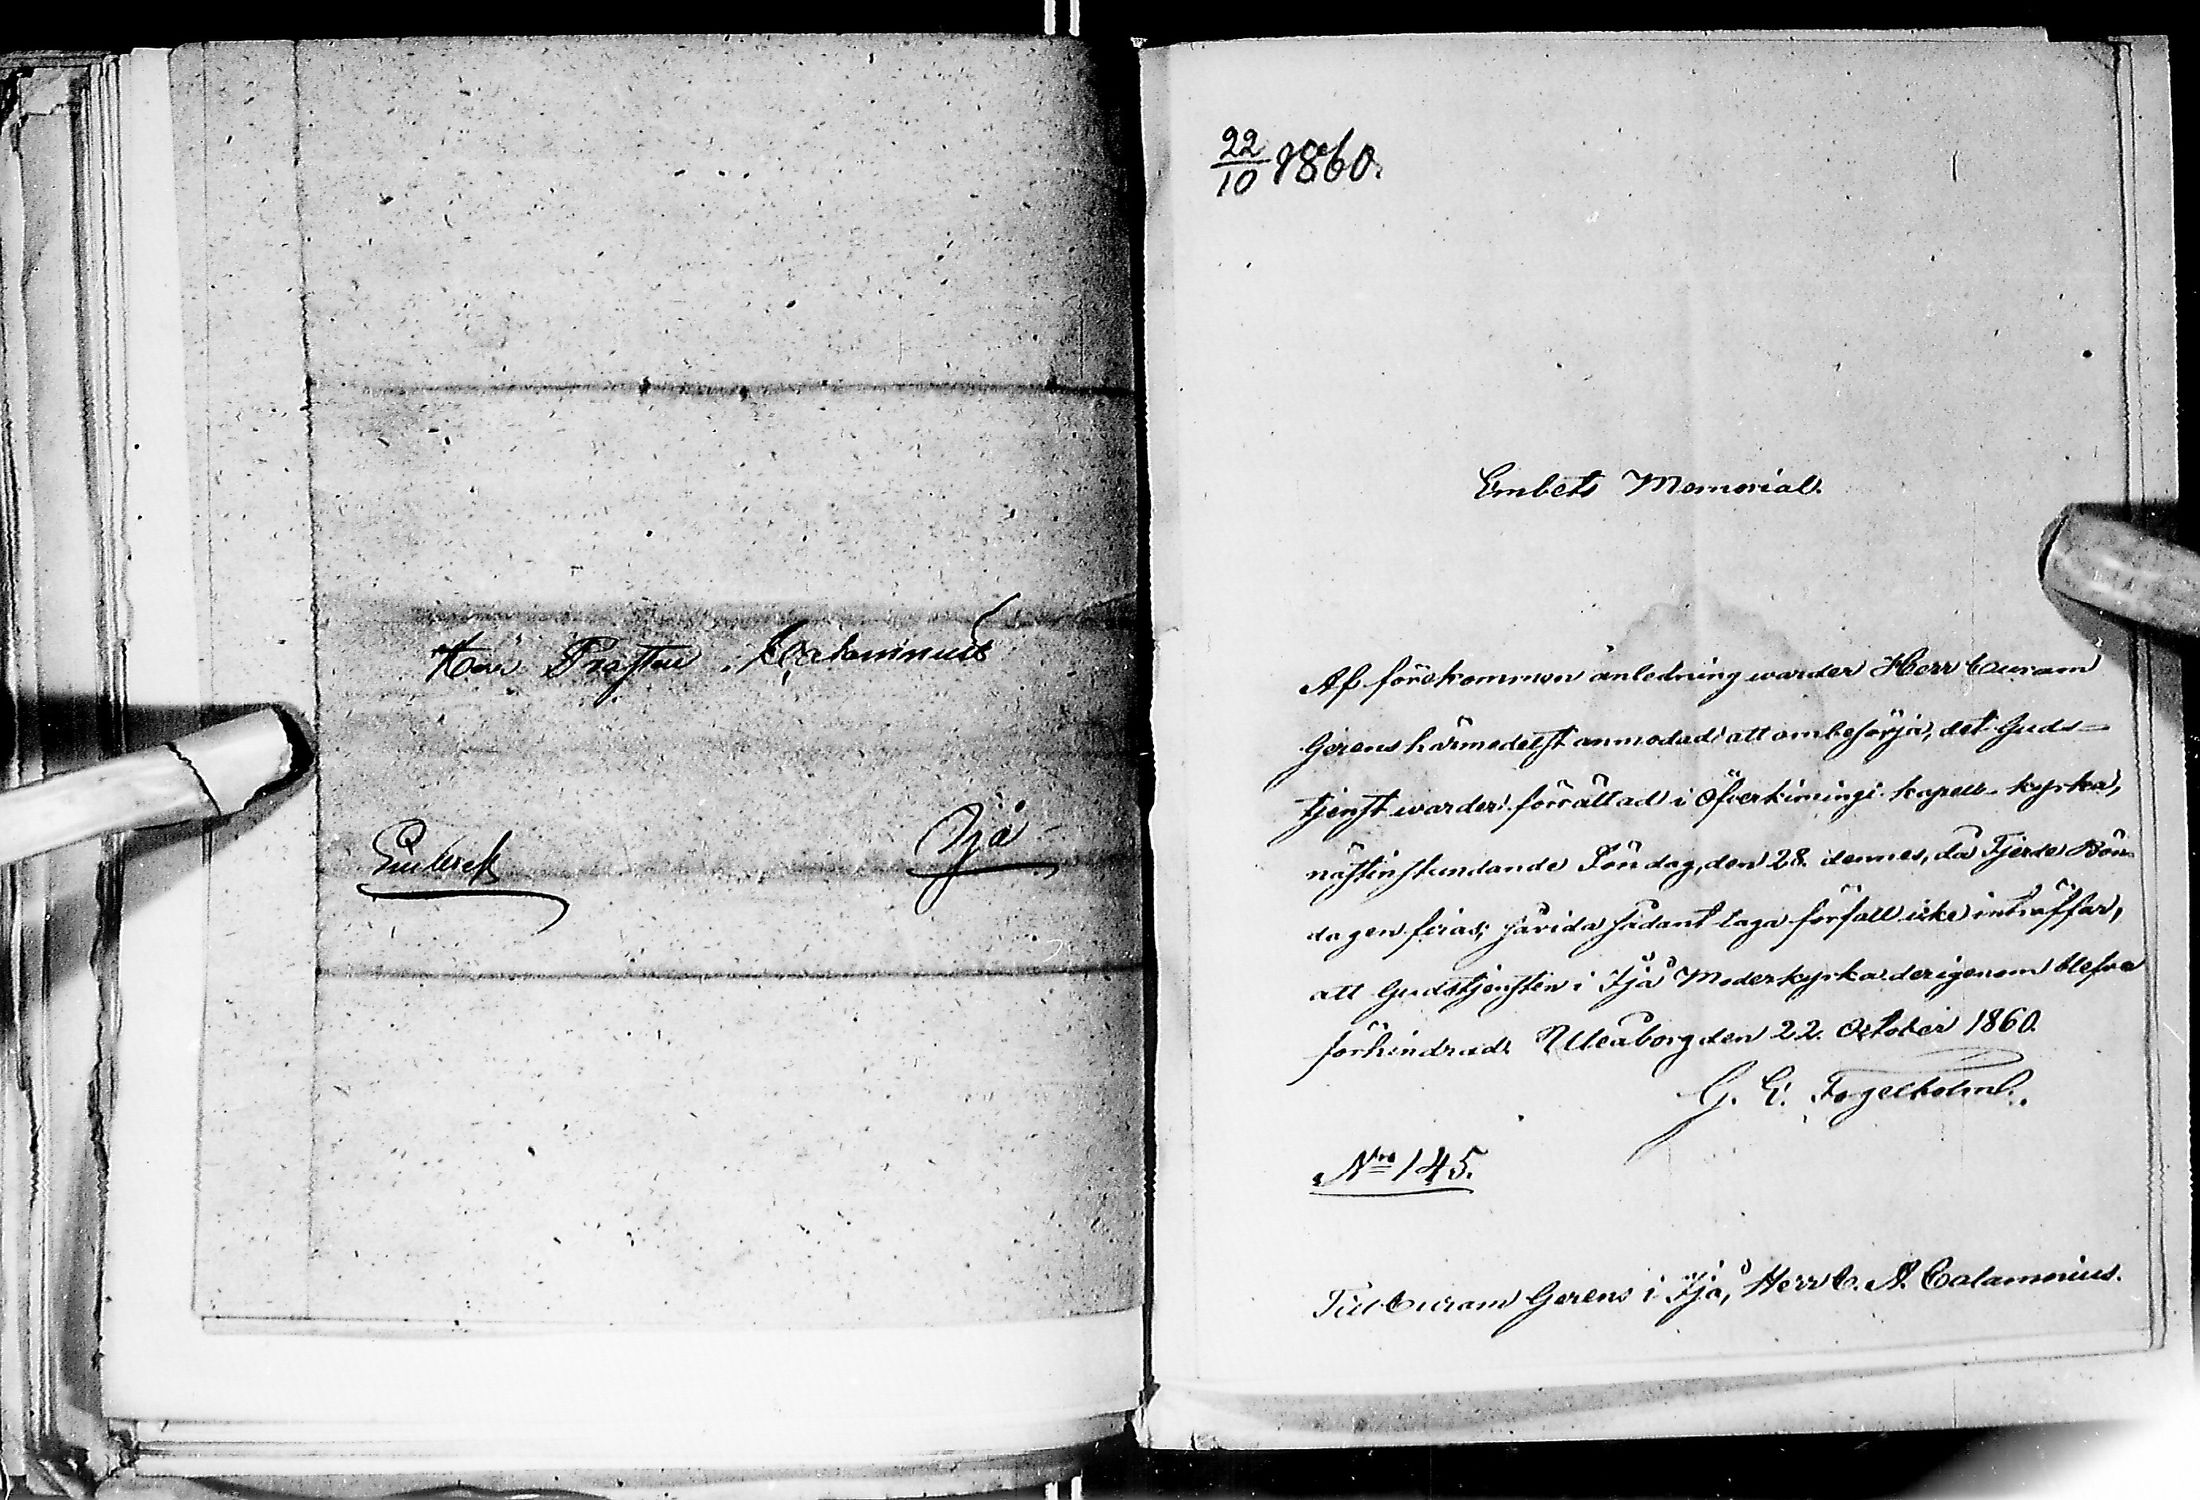 Herr Prosten Calamnius
Embets
Ijå
22/10 1860.
Embets Memorial.
Af förekommen anledning warder Herr Curam
Gerens härmedelst anmodad att ombesörja, det Guds-
tjenst warder förrättad i Öfverkiminge kapell-kyrka,
nästinstundande Söndag, den 28. dennes, då Fjerde Böne
dagen firas; såvida sådant laga förfall icke inträffar,
att Gudstjensten i Ijå Moderkyrka derigenom blefve
förhindrad. Uleåborg den 22. October 1860.
G. E. Fogelholm.
Nro 145.
Till Curam Gerens i Ijå, Herr C. A. Calamnius.